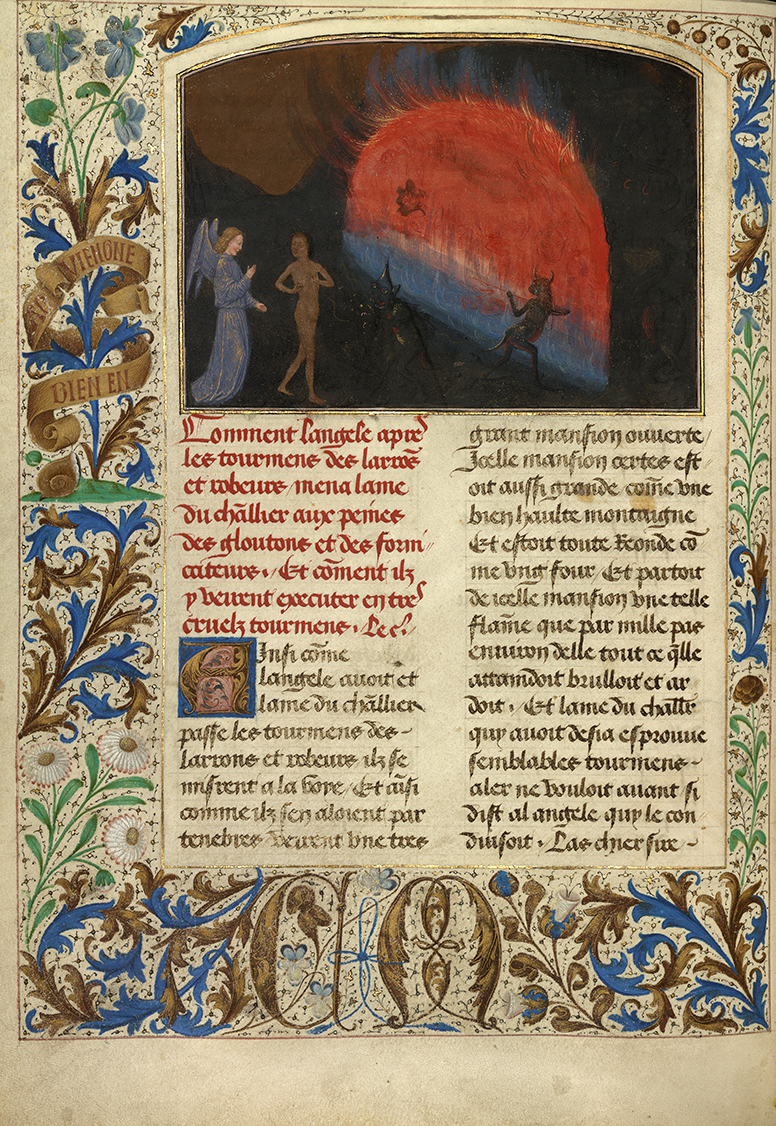 VIENGNE
BIEN EN
Comment langele apres
les tourmens des larrõs
et robeurs / mena lame
du chãllier aux peines
des gloutons et des forni//
cateurs. / Et cõment ilz
y veirent executer entres
cruelz tourmens. Le c.
Ainsi cõme
langele auoit et
lame du chãllier
passe les tourmens des -
larrons et robeurs ilz se
misrent a la voye / Et aĩsi
comme ilz sen aloient par
tenebres veirent vne tres
grant mansion ouuerte /
Icelle mansion certes est
oit aussi grande cõme vne
bien haulte montaigne
Et estoit toute Reonde cõ
me vng four / Et partoit
de icelle mansion vne telle
flãme que par mille pas
enuiron delle tout ce q̃lle
attaindoit brulloit et ar
doit. / Et lame du chãllr
quy auoit desia esprouue
semblables tourmens -
aler ne vouloit auant si
dist al angele quy le con
duisoit. Las chier sire -
CM